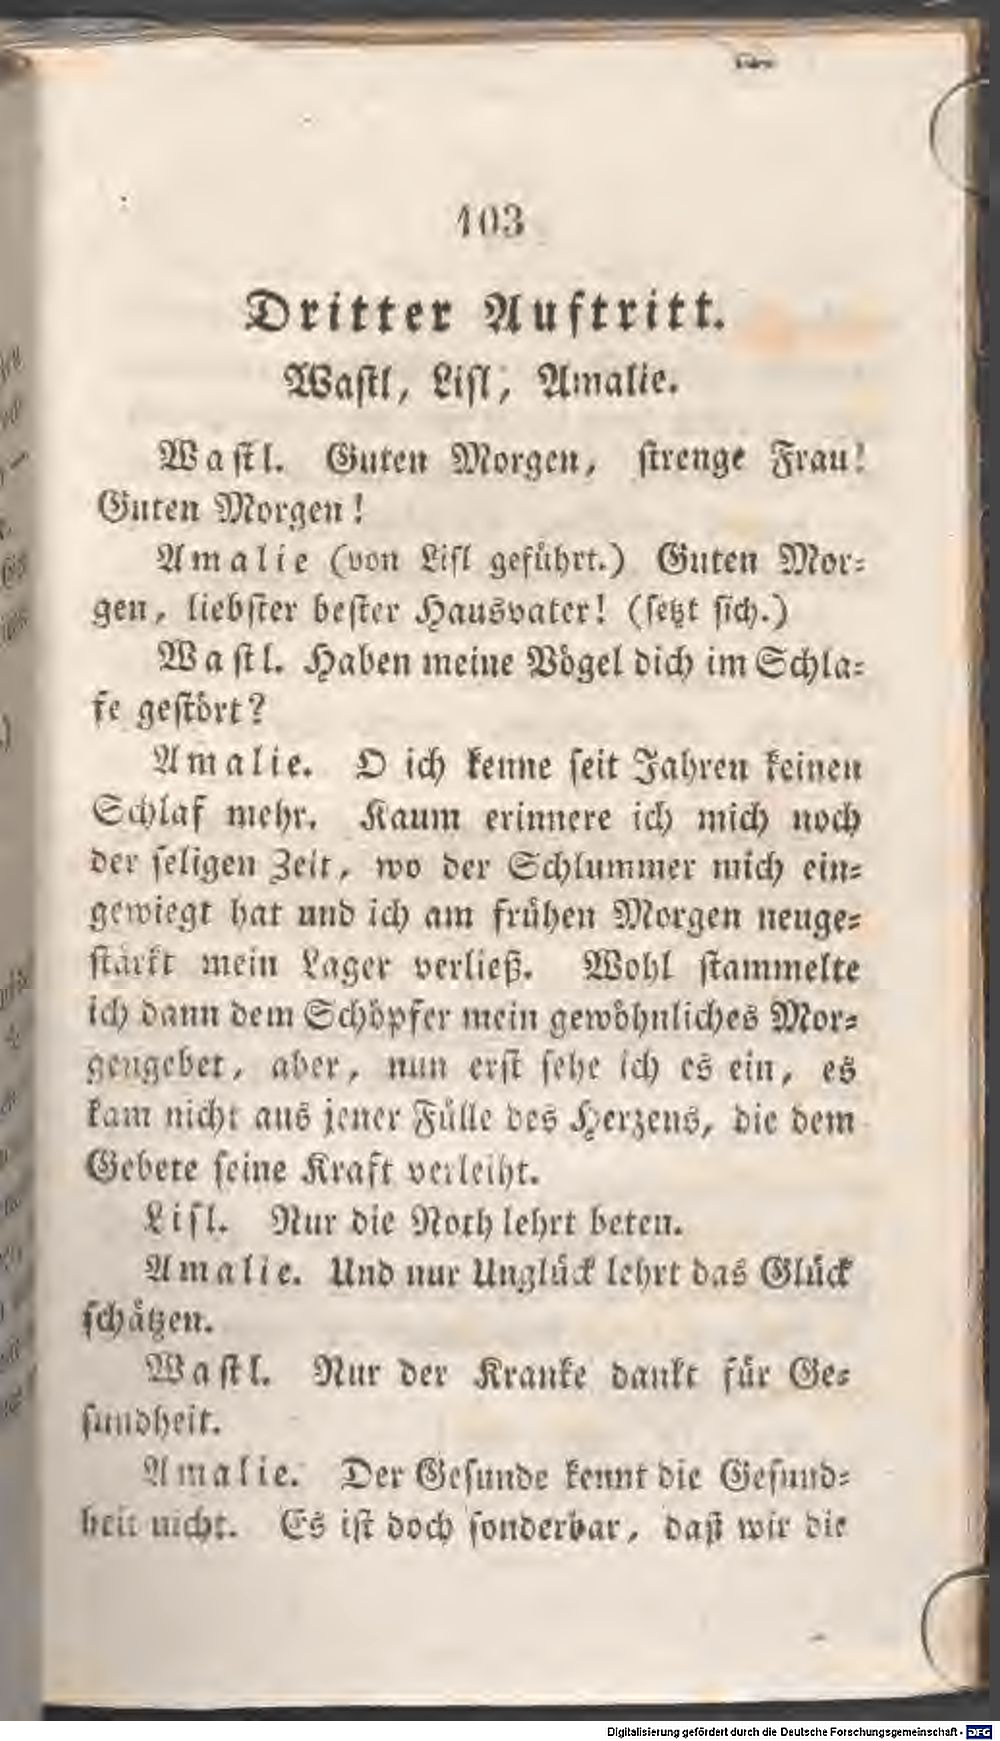 103
Dritter Auftritt.
Waſtl, Liſl, Amalie.
Waſtl. Guten Morgen, ſtrenge Frau!
Guten Morgen!
Amalie (von Liſl geführt.) Guten Mor-
gen, liebſter beſter Hausvater! (ſetzt ſich.)
Waſtl. Haben meine Vögel dich im Schla-
fe geſtört?
Amalie. O ich kenne ſeit Jahren keinen
Schlaf mehr. Kaum erinnere ich mich noch
der ſeligen Zeit, wo der Schlummer mich ein-
gewiegt hat und ich am frühen Morgen neuge-
ſtärkt mein Lager verließ. Wohl ſtammelte
ich dann dem Schöpfer mein gewöhnliches Mor-
gengebet, aber, nun erſt ſehe ich es ein, es
kam nicht aus jener Fülle des Herzens, die dem
Gebete ſeine Kraft verleiht.
Liſl. Nur die Noth lehrt beten.
Amalie. Und nur Unglück lehrt das Glück
ſchätzen.
Waſtl. Nur der Kranke dankt für Ge-
ſundheit.
Amalie. Der Geſunde kennt die Geſund-
heit nicht. Es iſt doch ſonderbar, daſt wir die
Digitalisierung gefördert durch die Deutsche Forschungsgemeinschaft - DFG